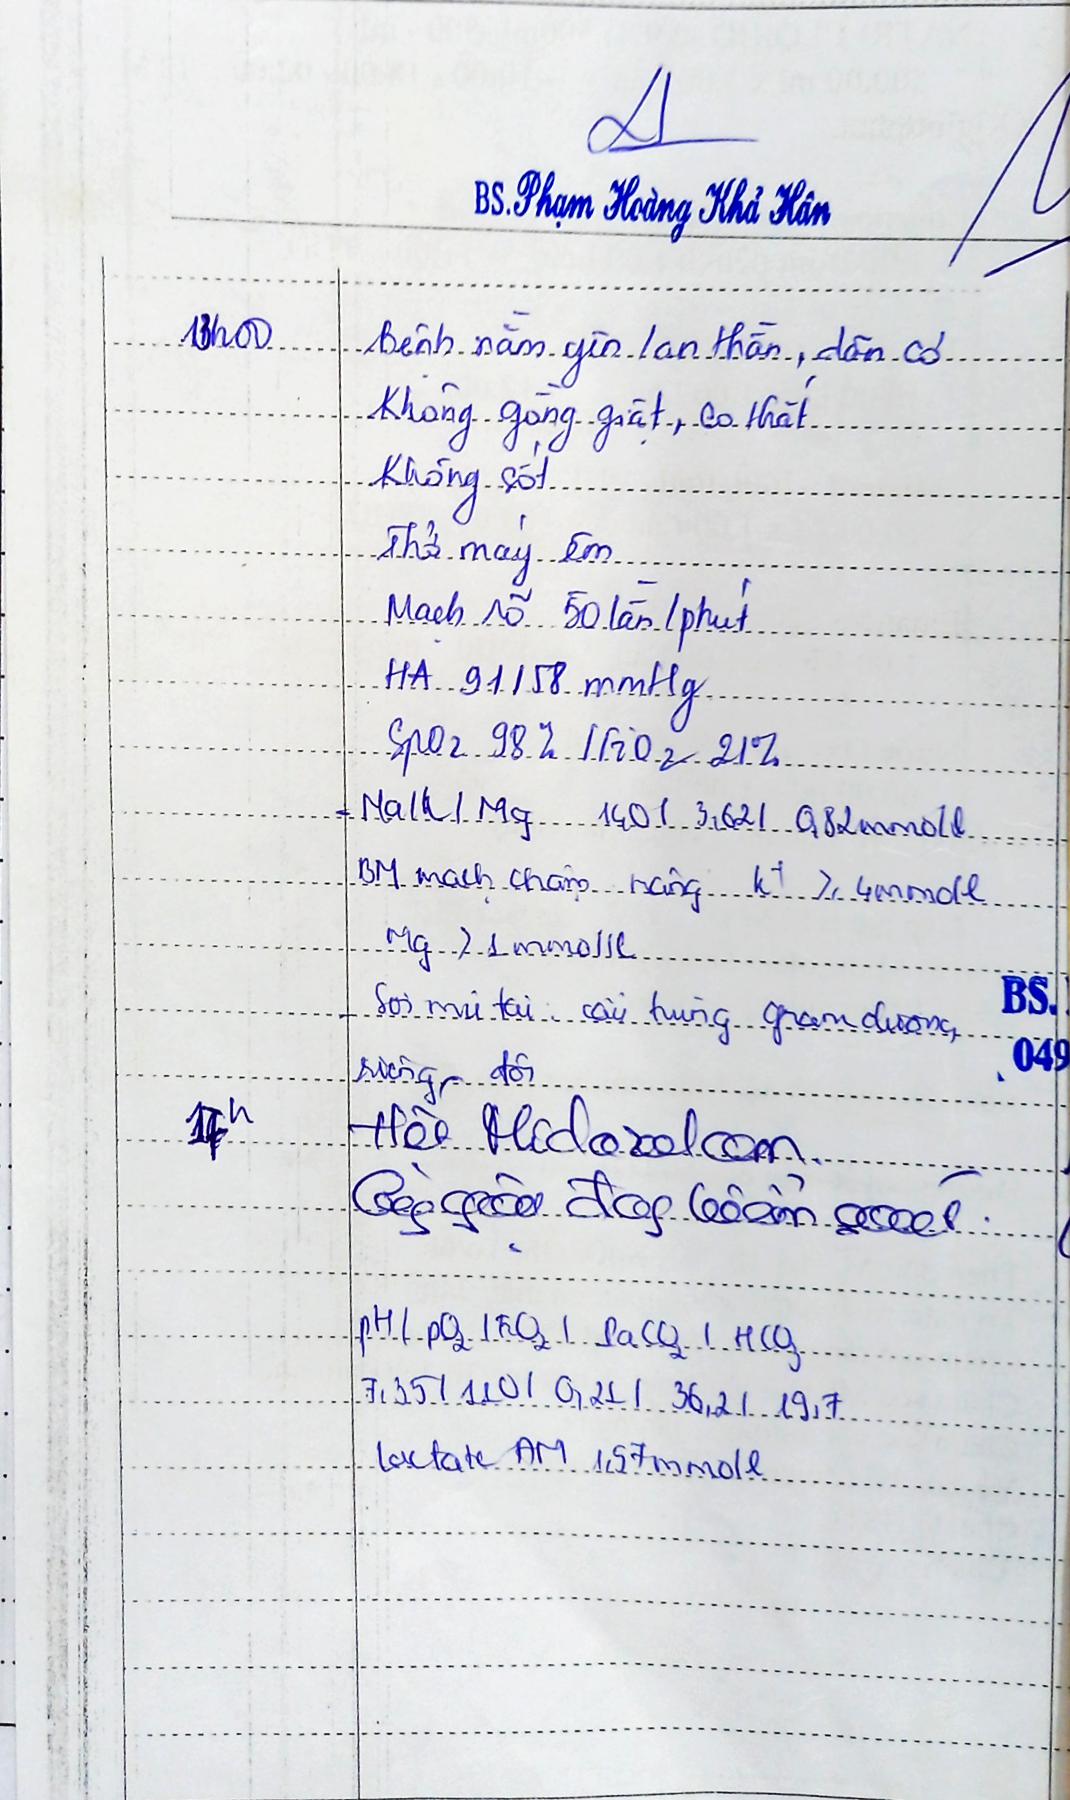 BS. Phạm Hoàng Khả Hân
13h00
Bệnh nằm yên / an thần, dãn cơ
Không gồng giật, co thắt
Không sốt
Thở máy êm
Mạch rõ 50 lần/phút
HA 91/58 mmHg
SpO2 98% / FiO2 21%
- Na/K/Mg 140/ 3,62/ 0,82mmol/l
BN mạch chậm nâng K+ ≥ 4mmol/l
Mg > 1 mmol/l
BS.
- Soi mủ tai: cầu trùng gram dương,
049
riêng, đôi
17h
Hết Midazolam.
pH/ pO2 / FiO2 / PaCO2 / HCO3
7,35/ 110/ 0,21/ 36,2/ 19,7
lactate ĐM 1,57mmol/l